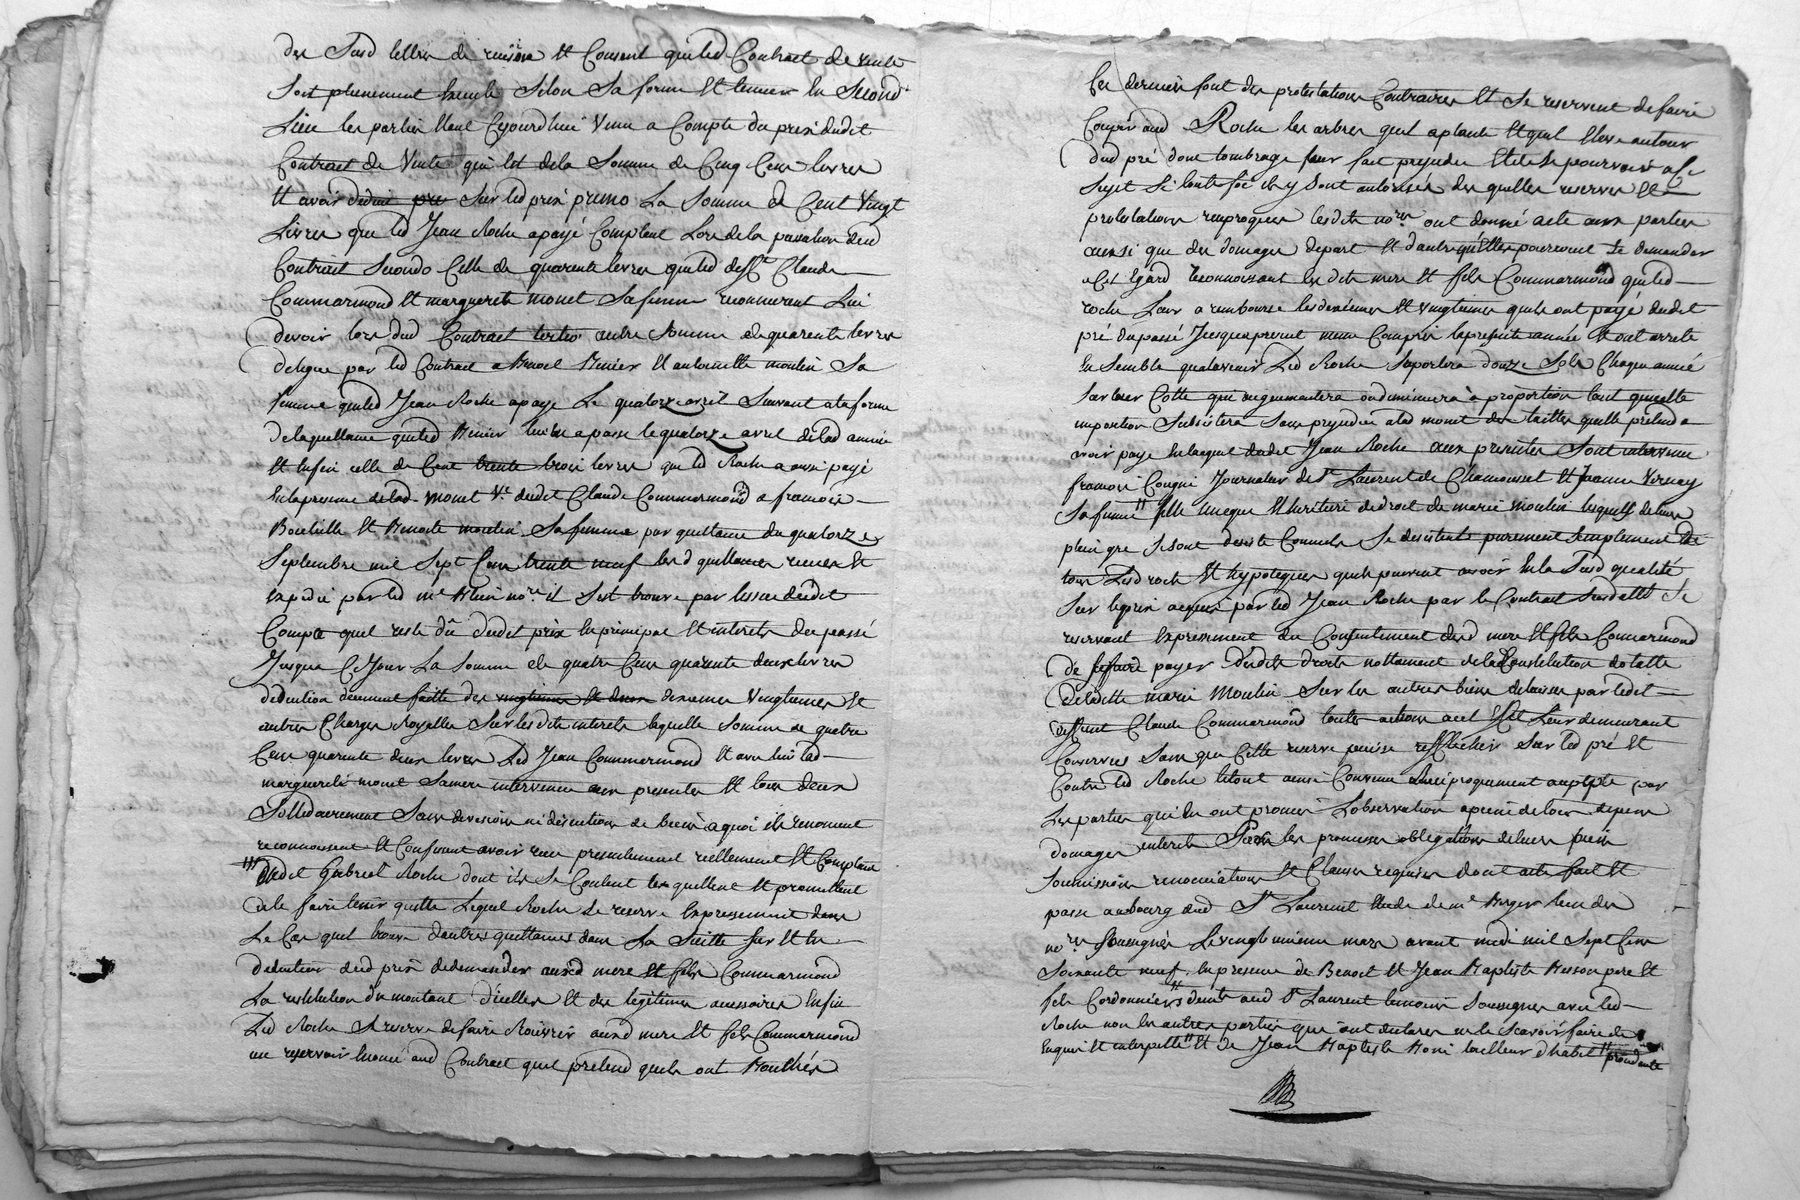 des Susd lettres de rescision Et Consent queled Contract de vente
Soit pleinement Executé Selon Sa forme Et teneur En Second
Lieu les parties Etant Cejourdhui Venu a Compte du prix dudit
Contract de Vente qui Est dela Somme de Cinq Cens livres
Et avoir deduit pre Sur led prix primo La Somme de Cent Vingt
Livres que led Jean Roche apayé Comptant Lors dela passation dud
Contract Secondo Celle de quarente livres queled Claude
Commarmond Et marguerite monet Safemme reconnurent Lui
devoir lors dud Contract tertio autre Somme de quarente livres
deleguée par led Contract a Benoit Et antoinette moulin Sa
femme queled Jean Roche apayé Le quatorze avril Suivant ala forme
dela quittance queled Enà passé lequatorze avril delad année
Et Enfin celle de Cent trente trois livres que led Roche a aussi payé
Enlapresence delad monet Ve dudit Claude Commarmond a francois
Et Benoite moulin Safemme par quittance du quatorze
Septembre mil Sept Cens trente neuf lesd quittances receues Et
Expedié par led Me nore il Sest trouvé par lissue dudit
Compte quil reste dû dudit prix En principal Et interets du passé
Jusqua Ce Jour La Somme de quatre Cens quarente deux livres
deduction deument faitte des vingtiemes Et deux dixiemes Vingtiemes Et
autres Charges Royalles Sur lesdits interets laquelle Somme de quatre
Cens quarente deux livres Led Jean Commarmond Et avec lui lad
marguerite monet Samere intervenue aux presentes Et tous deux
Sollidairement Sans division ni discution de biens aquoi ils renoncent
reconnoissent Et Confessent avoir receu presentement reellement Et Comptant
dudit Gabriel Roche dont ils Se Contentent Len quittent Et promettent
dele faire tenir quitte Lequel Roche Se reserve Expressement dans
Le Cas quil trouve dautres quittances dans La Suitte Sur Et En
deduction dud prix dedemander ausd mere Et fils Commarmond
La restitution du montant d'icelles Et des legitimes accessoires Enfin
Led Roche Se reserve defaire Rouvrir ausd mere Et fils Commarmond
un reservoir Enoncé aud Contract quil pretend quils ont Bouché
Ces derniers font des protestations Contraires Et Se reservent defaire
Couper aud Roche les arbres quil aplanté Et quil Eleve autour
dud pré dont lombrage leur fait prejudice Et de Se pourvoir a Ce
Sujet Si toute fois ils y Sont autorisés des quelles reserves Et
protestations reciproques lesdits nores ont donné acte aux parties
ainsi que des domages depart Et dautre quelles pourront Se demander
a Cet Egard reconnoissant lesdits mere Et fils Commarmond queled
roche Leur a remboursé lesdixiemes Et vingtiemes quils ont payé dudit
pré dupassé Jusquapresent meme Compris lapresente année Et ont arreté
Ensemble qualavenir Led Roche Suportera douze Sols Chaque année
Sur leur Cotte qui augmentera oudiminuera à proportion tant quicelle
imposition Subsistera Sans prejudice alad monet des tailles quelle pretend
avoir payé Enlacquit dudit Jean Roche aux presentes Sont intervenu
francois Journalier de St Laurent de Chamousset Et Jeanne Vernay
Safemme fille unique Et heritiere dedroit de marie moulin lesquels deleur
plein gré Se Sont desisté Comme Se desistent purement Simplement de
tous Lesd roch Et hypoteques quils peuvent avoir En la Susd qualité
Sur lepré acquis par led Jean Roche par le Contract Susdatté Se
reservant Expressement du Consentement desd mere Et fils Commarmond
de Sefaire payer desdits droits nottament delaConstitution dotalle
deladitte marie Moulin Sur les autres biens delaissés par ledit
deffunt Claude Commarmond toutes actions a cet Effet Leur demeurant
Conservées Sans que Cette reserve puisse reffléchir Sur led pré Et
Contre led Roche letout ainsi Convenu Et reciproquement accepté par
Les parties qui En ont promis Lobservation apeine de tous depens
domages interets Sous les promesses obligations deleurs biens
Soumissions renonciations Et Clauses requises dont acte fait Et
passé aubourg dud St Laurent Etude de Me Berger lun des
nores Soussignés Levingt uniéme mars avant midi mil Sept Cens
Soixante neuf En presence de Benoit Et Jean Baptiste Besson pere Et
fils Cordonniers demts aud St Laurent temoins Soussignés avec led
Roche non les autres parties qui ont declaré ne le Scavoir faire de
Enquis Et interpellé Et de Jean Baptiste tailleur dhabit